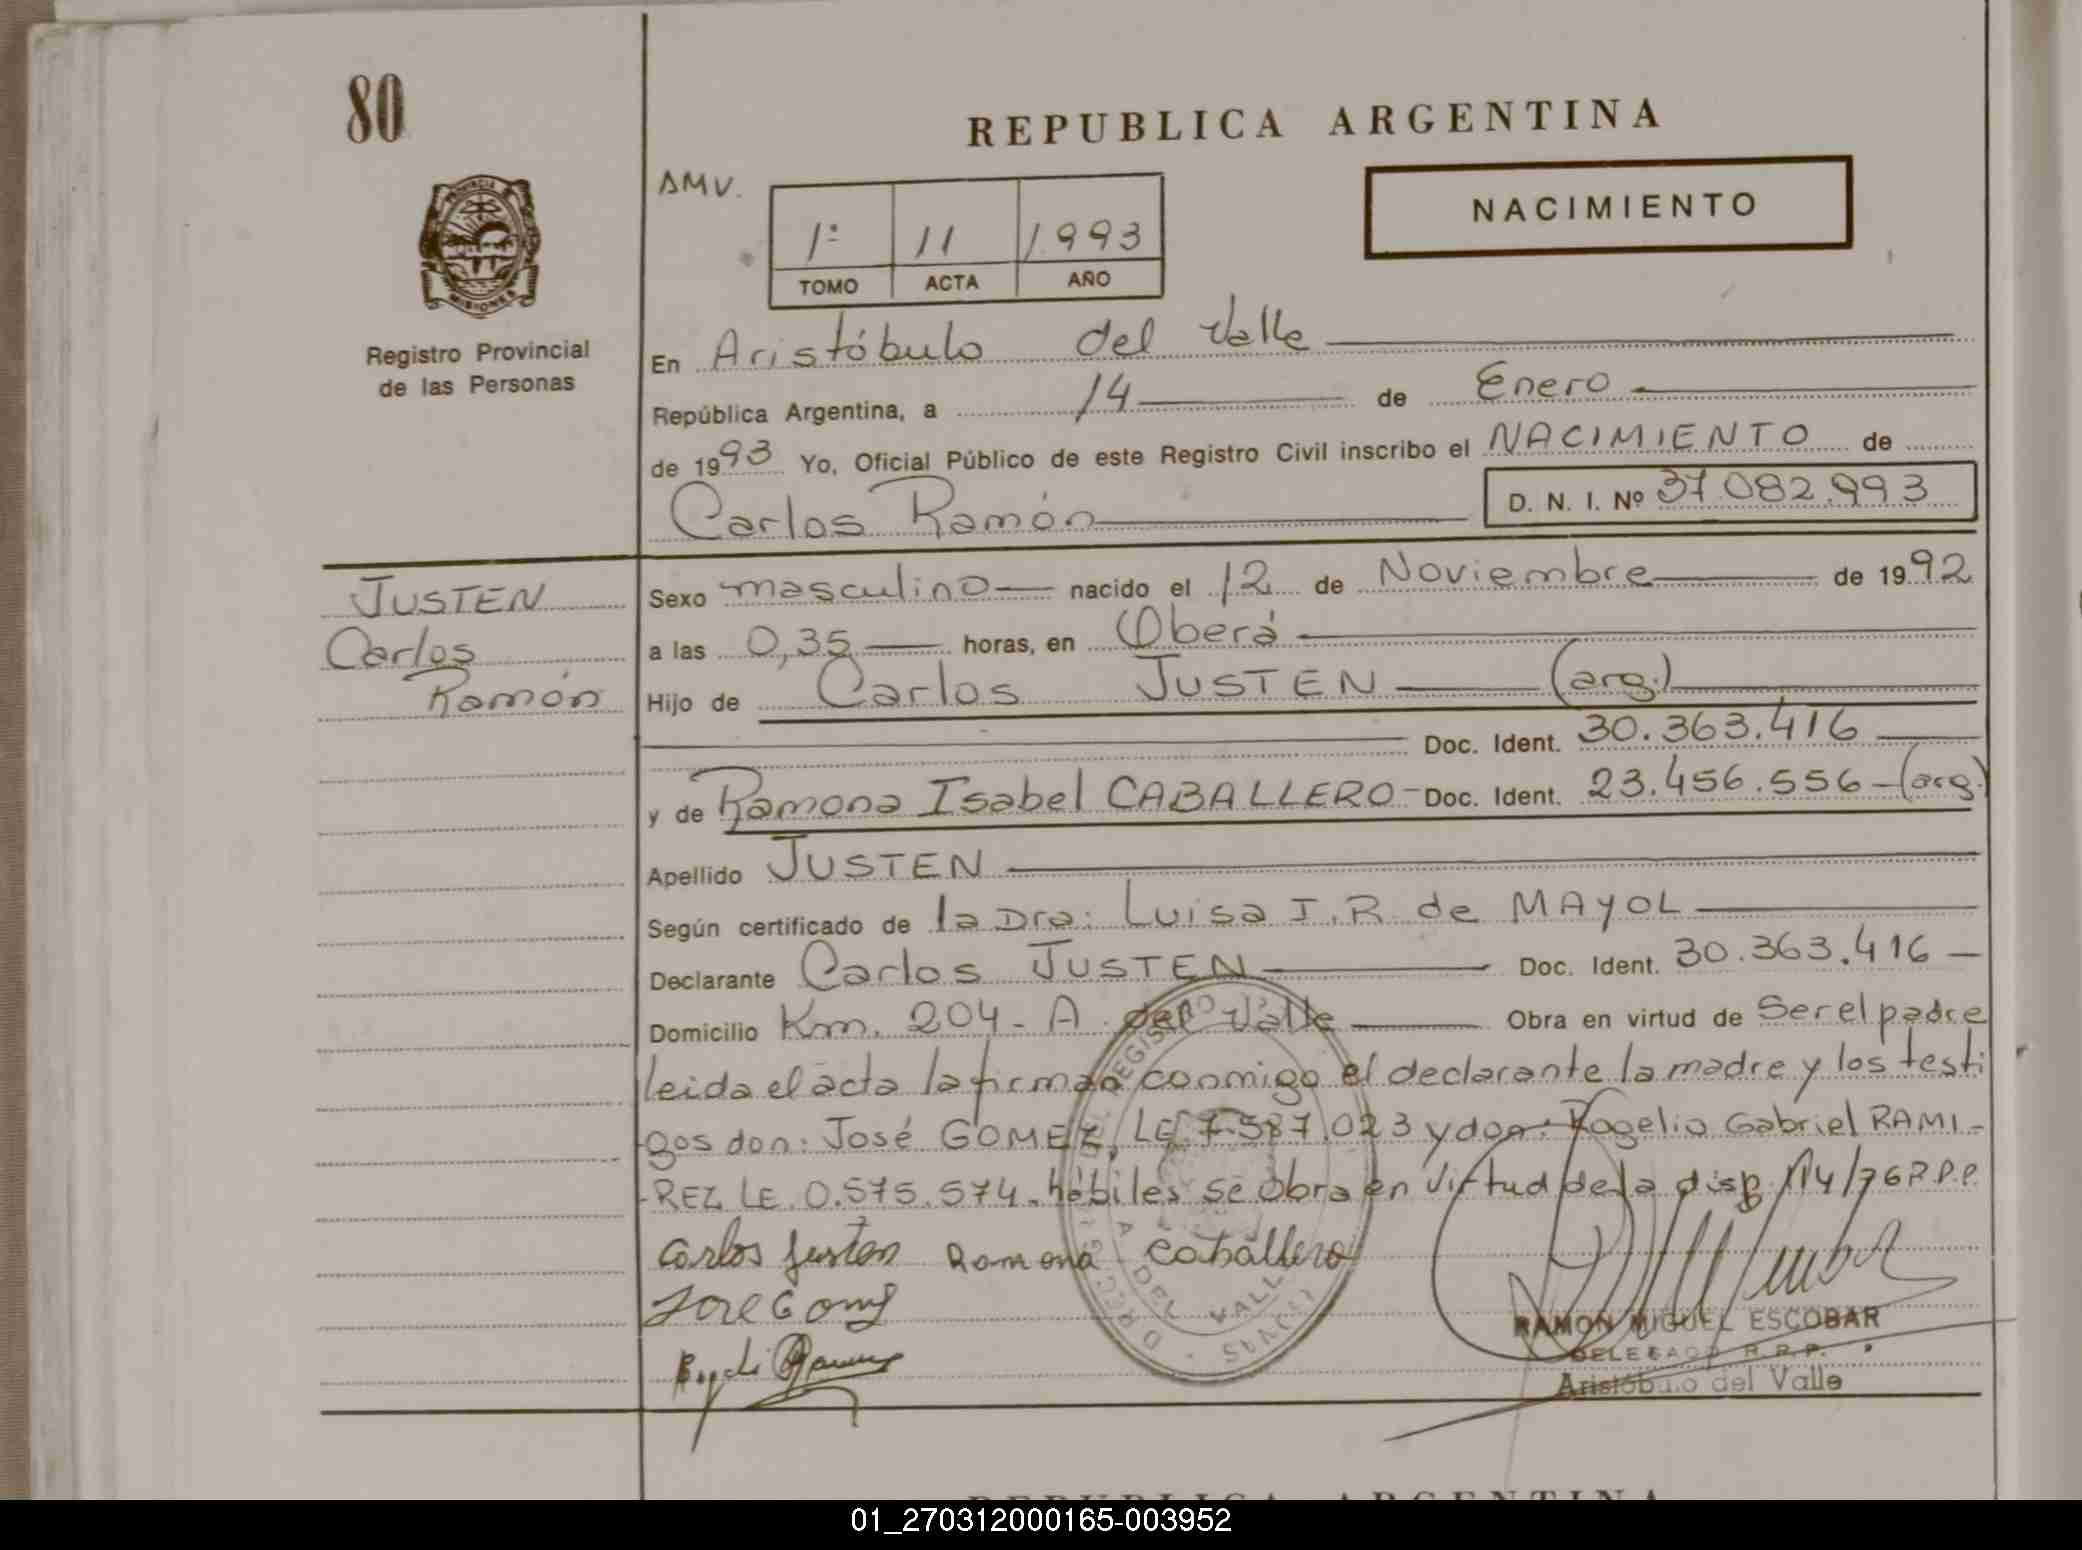 80
REPUBLICA ARGENTINA
NACIMIENTO
AMV.
1º 11 1993
TOMO ACTA AÑO
PROVINCIA DE
MISIONES
Registro Provincial
de las Personas
En Aristóbulo del Valle
República Argentina, a 14 de Enero
de 1993 Yo, Oficial Público de este Registro Civil inscribo el NACIMIENTO de
Carlos Ramón D. N. I. Nº 37.082.993
JUSTEN
Carlos
Ramón
Sexo masculino nacido el 12 de Noviembre de 1992
a las 0,35 horas, en Oberá
Hijo de Carlos JUSTEN (arg.)
Doc. Ident. 30.363.416
y de Ramona Isabel CABALLERO- Doc. Ident. 23.456.556-(arg.)
Apellido JUSTEN
Según certificado de la Dra: Luisa I.R. de MAYOL
Declarante Carlos JUSTEN Doc. Ident. 30.363.416 -
Domicilio Km. 204- A. del Valle Obra en virtud de Ser el padre
leida el acta la firman conmigo el declarante la madre y los testi
gos don: José GOMEZ, LE. 7.587.023 y don: Rogelio Gabriel RAMI-
-REZ LE. 0.575.574. hábiles se obra en virtud de la disp. 114/76 R.P.P.
Carlos Justen Ramona Caballero
Jose Gomez
RAMON MIGUEL ESCOBAR
DELEGADO R.P.P.
Aristóbulo del Valle
A. DEL VALLE
REPUBLICA ARGENTINA
01_270312000165-003952